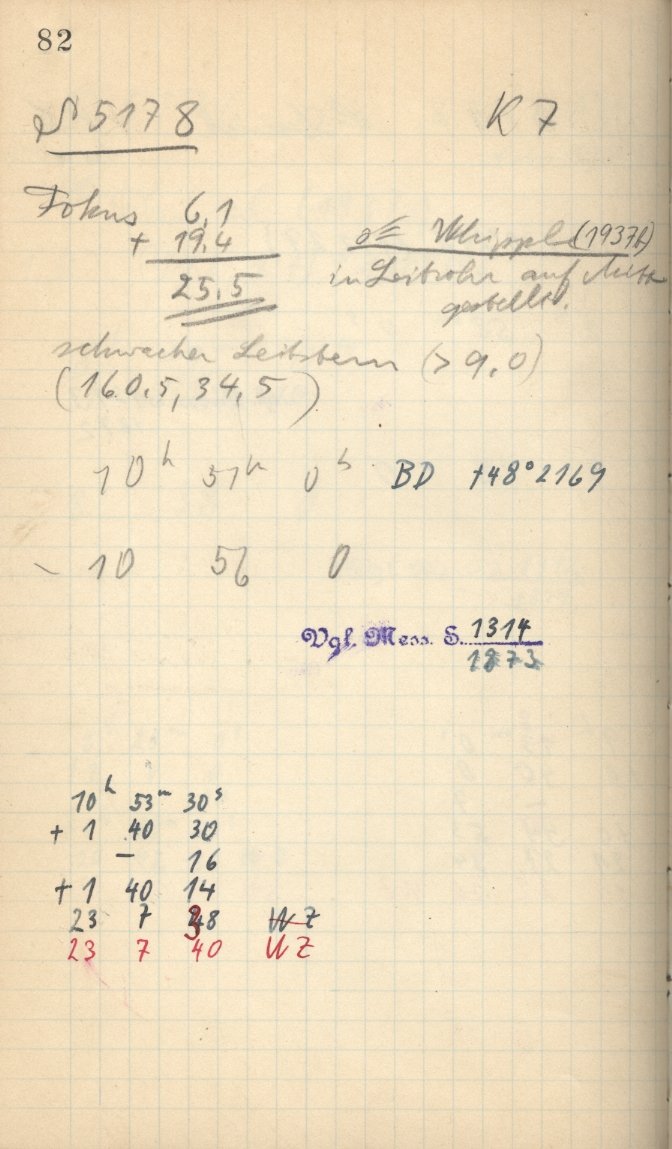 82
S 5178 K7
Fokus 6,1
+ 19,4
25,5
☄ Whipple (1937b)
in Leitrohr auf Mitte
gestellt.
schwacher Leitstern (> 9,0)
(160.5, 34,5)
10h 51m 0s BD +48°2169
– 10 56 0
Vgl. Mess. S. 1314
1873
10h 53m 30s
+ 1 40 30
– 16
+ 1 40 14
23 7 38 WZ
23 7 40 WZ